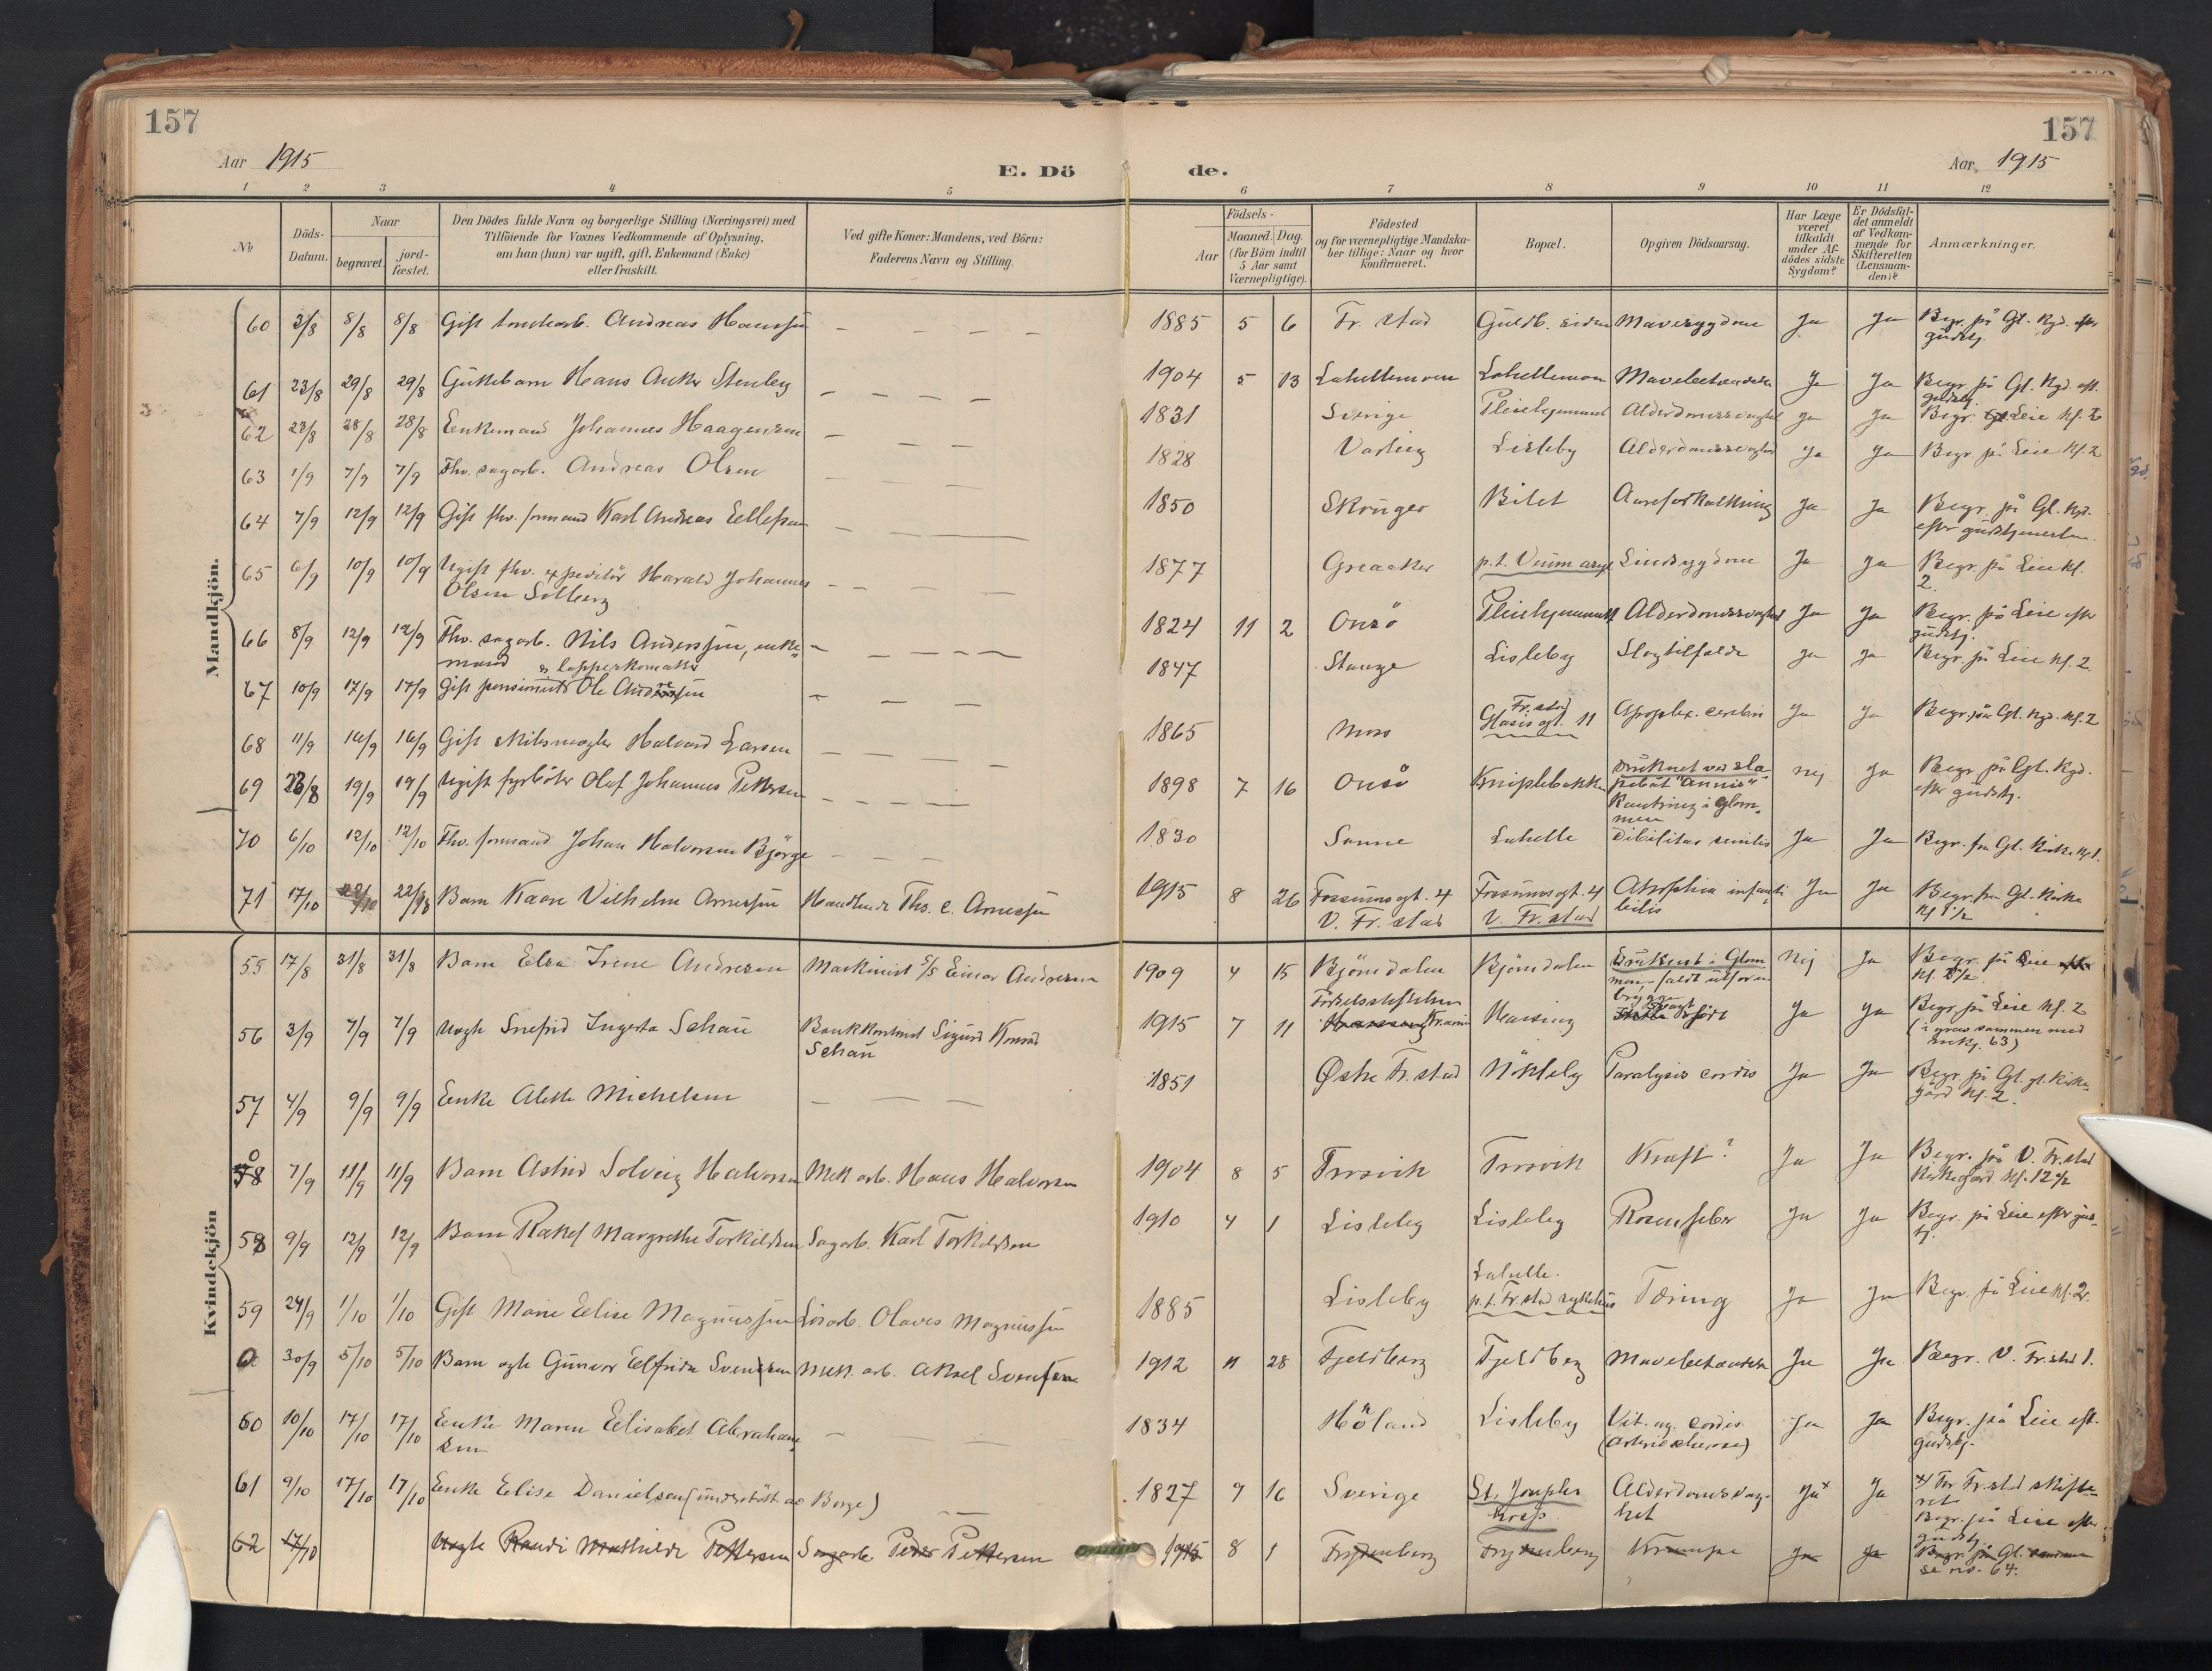 157
157
Aar 1915
E. Dö
de.
Aar 1915
1 2 3 4 5 6 7 8 9 10 11 12
No
Döds-Datum.
Naar
begravet.
jord-fæstet.
Den Dödes fulde Navn og borgerlige Stilling (Næringsvei) med
Tilföiende for Voxnes Vedkommende af Oplysning,
om han (hun) var ugift, gift, Enkemand (Enke)
eller fraskilt.
Ved gifte Koner: Mandens, ved Börn:
Faderens Navn og Stilling.
Födsels-
Aar
Maaned. Dag.
(for Börn indtil
5 Aar samt
Værnepligtige).
Födested
og for værnepligtige Mandska-
ber tillige: Naar og hvor
konfirmeret.
Bopæl.
Opgiven Dödsaarsag.
Har Læge
været
tilkaldt
under Af-
dödes sidste
Sygdom?
Er Dödsfal-
det anmeldt
af Vedkom-
mende for
Skifteretten
(Lensman-
den)?
Anmærkninger.
Mandkjön.
60 3/8 8/8 8/8 Gift Andreas Hanssen 1885 5 6 Fr. stad Guldb. siden Mavesygdom Ja Ja Begr. på Gl. Kgd. efter
gudstj.
61 23/8 29/8 29/8 Guttebarn Hans Anker Stenberg 1904 5 13 Lahellemoen Lahellemoen Ja Ja Begr. på Gl. Kgd. eft.
gudstj.
62 23/8 28/8 28/8 Enkemand Johannes Haagensen 1831 Sverige Pleiehjemmet Ja Ja Begr. Leie kl. 2
63 1/9 7/9 7/9 Fhv. sagarb. Andreas Olsen 1828 Varteig Lisleby Ja Ja Begr. på Leie kl. 2
64 7/9 12/9 12/9 Gift fhv. formand Karl Andreas Ellefsen 1850 Skauger Bilet Aareforkalkning Ja Ja Begr. på Gl. Kgd.
efter gudstjenesten.
65 6/9 10/9 10/9 Ugift fhv. expeditör Harald Johannes 1877 Greaaker p.t. Veum asyl Sindsygdom Ja Ja Begr. på Leie kl.
Olsen Solberg 2.
66 8/9 12/9 12/9 Fhv. sagarb. Nils Anderssen, enke- 1824 11 2 Onsö Pleiehjemmet Ja Ja Begr. på Leie efter
mand gudstj.
67 10/9 17/9 17/9 Gift pensionist Ole 1847 Stange Lisleby Slagtilfælde Ja Ja Begr. på Leie kl. 2
68 11/9 16/9 16/9 Gift Halvard Larsen 1865 Moss Fr. stad
Glasisgt. 11 Apoplex. cerebri Ja Ja Begr. på Gl. Kgd. kl. 2
69 23/8 19/9 19/9 Ugift fyrböter Olaf Johannes Pettersen 1898 7 16 Onsö Kniplebakken Druknet ved sla- Nej Ja Begr. på Gl. Kgd.
pebåt "Annies" efter gudstj.
Kantring i Glom-
men
70 6/10 12/10 12/10 Fhv. formand Johan Halvorsen Björge 1830 Lahelle Debilitas senilis Ja Ja Begr. fra Gl. Kirke kl. 1.
71 17/10 22/10 22/10 Barn Kaare Vilhelm Arnessen Handlende Ths. C. Arnessen 1915 8 26 Fossumsgt. 4 Fossumsgt. 4 Atrophia infanti Ja Ja Begr. fra Gl. Kirke
V. Fr. stad V. Fr. stad bilis kl. 1 1/2
Kvindekjön
55 17/8 31/8 31/8 Barn Elsa Irene Andresen Maskinist S/S Einar Andresen 1909 4 15 Björndalen Björndalen Druknet i Glom Nej Ja Begr. på Leie
men, faldt utfor en
brygge
56 3/9 7/9 7/9 Uægte Snefrid Ingerta Schau Bankkontorist Sigurd Konrad 1915 7 11 Födselsstiftelsen Ja Ja Begr. på Leie kl. 2
Schau (i grav sammen med
63)
57 4/9 9/9 9/9 Enke Alette Michelsen 1851 Østre Fr. stad Nökleby Paralysis cordis Ja Ja Begr. på Gl. gl. Kirke-
gård kl. 2.
58 7/9 11/9 11/9 Barn Astrid Solveig Halvorsen Mek. arb. Hans Halvorsen 1904 8 5 Trosvik Trosvik Kræft? Ja Ja Begr. på V. Fr. stad
Kirkegård kl. 12 1/2
58 9/9 12/9 12/9 Barn Rakel Margrethe Torkildsen Sagarb. Karl Torkildsen 1910 4 1 Lisleby Lisleby Rosenfeber Ja Ja Begr. på Leie efter gud-
tj.
59 24/9 1/10 1/10 Gift Marie Elise Magnussen Lösarb. Olaves Magnussen 1885 Lisleby Lahelle.
p.t. Fr. stad sykehus Tæring Ja Ja Begr. på Leie kl. 2.
0 30/9 5/10 5/10 Barn ægte Gunvor Elfrida Svendsen Mek. arb. Aksel Svendsen 1912 11 28 Fjeldberg Fjeldberg Ja Ja Begr. V. Fr. stad 1.
60 10/10 17/10 17/10 Enke Maren Elisabet Abraham- 1834 Höland Lisleby Vit. org. cordis Ja Ja Begr. på Leie eft.
sen gudstj.
61 9/10 17/10 17/10 Enke Elise Danielsen (understöttet av Borge) 1827 9 16 Sverige St. Josephs Alderdomssvag- Ja x Ja x) For Fr. stad skifte-
hosp. het ret
Begr. på Leie efter
gudstj.
62 17/10 Uægte Randi Mathilde Pettersen Sagarb. Peder Pettersen 1915 8 1 Frydenberg Frydenberg Krampe Ja Ja Begr. på Gl.
se no. 64.